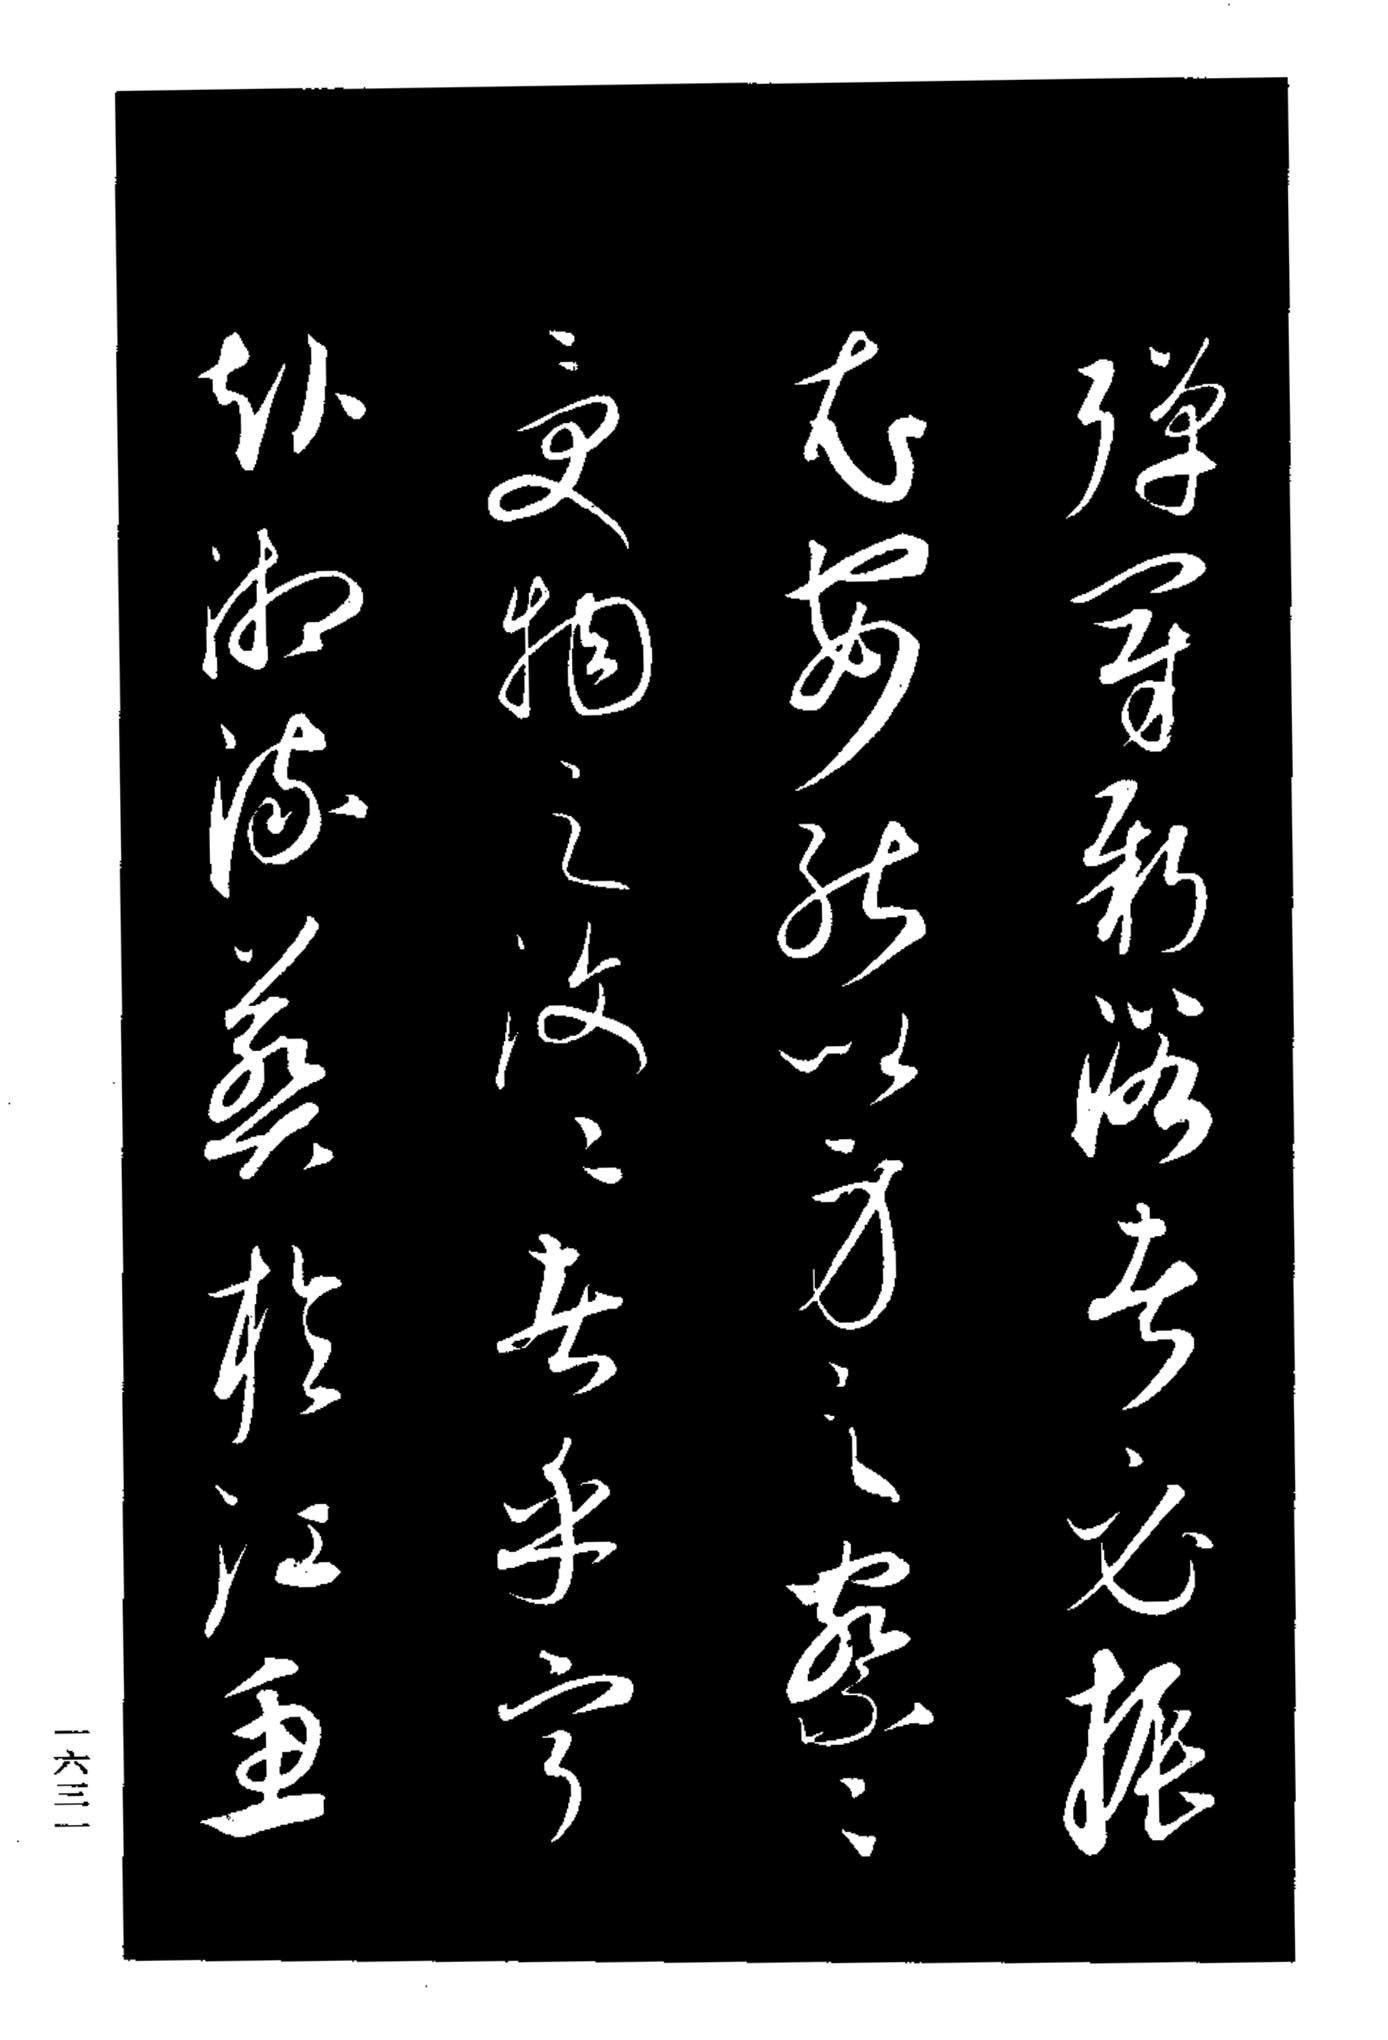 彈冠新浴者必振
衣安能以身之察察
受物之汶汶者乎寧
赴湘流葬於江魚
一六三